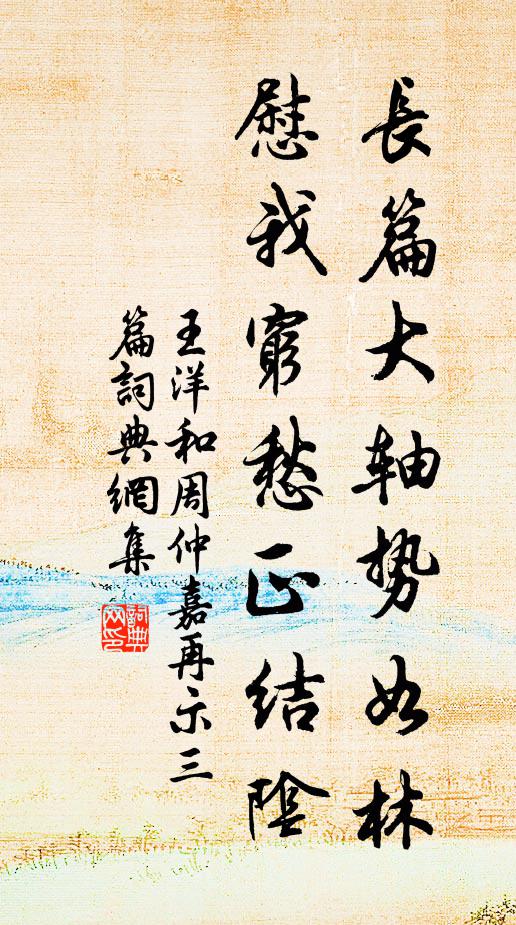 長篇大轴势如林
慰我窮愁正結陰
王洋和周仲嘉再示三
篇詞典網集
詞典網印